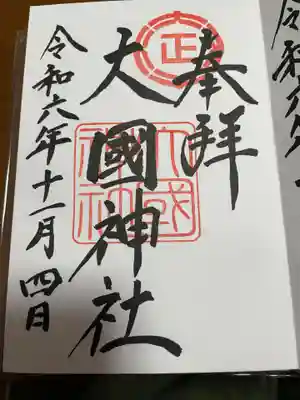 奉拝
大國神社
令和六年十一月四日
大正
大國
神社